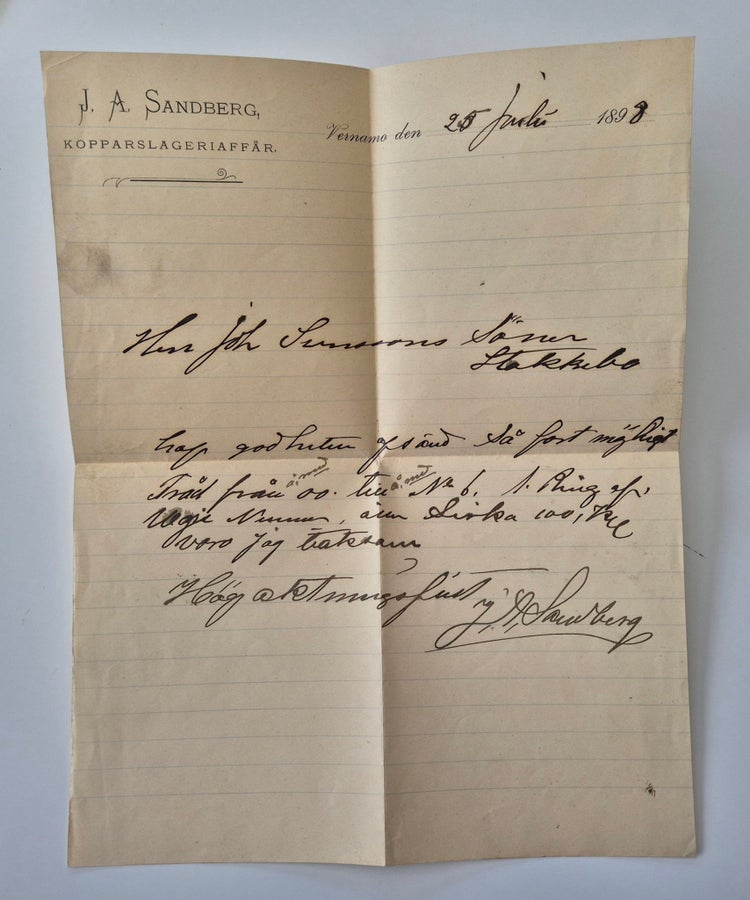 J. A. SANDBERG,
KOPPARSLAGERIAFFÄR.
Vernamo den 25 Juli 1898
Herr Joh Svenssons Söner
Stakkebo
haf godheten afsänd Så fort möjligt
Tråd från å med 00. till å. med No 6. 1. Ring af,
Nummer, Sirka 100, K
voro jag taksam
Högaktningsfult
J. A. Sandberg